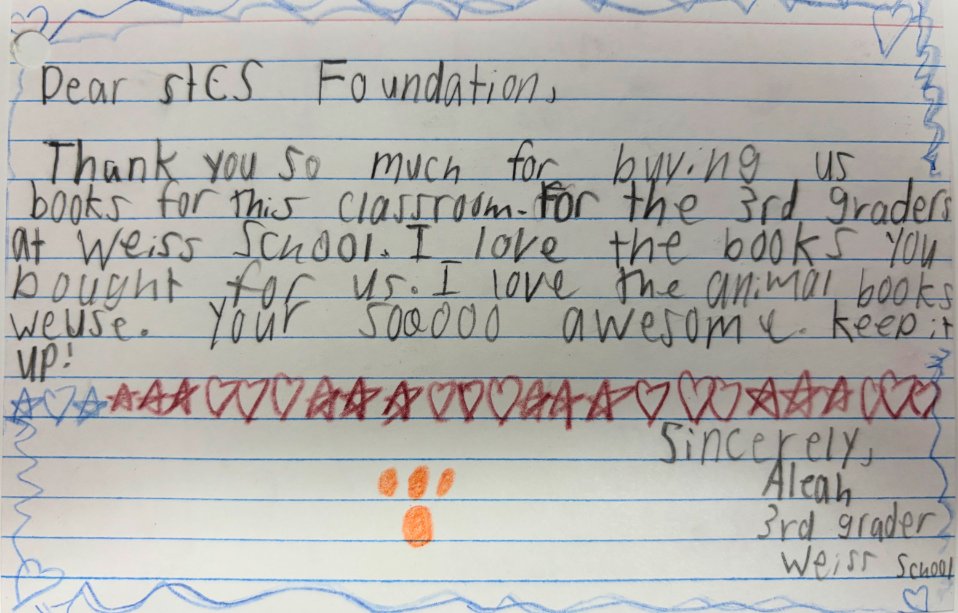 Dear stES Foundation,
Thank you so much for buying us
books for this classroom. For the 3rd graders
at Weiss School. I love the books you
bought for us. I love the animal books
we use. Your soooooo awesome. keep it
up!
Sincerely,
Aleah
3rd grader
Weiss School